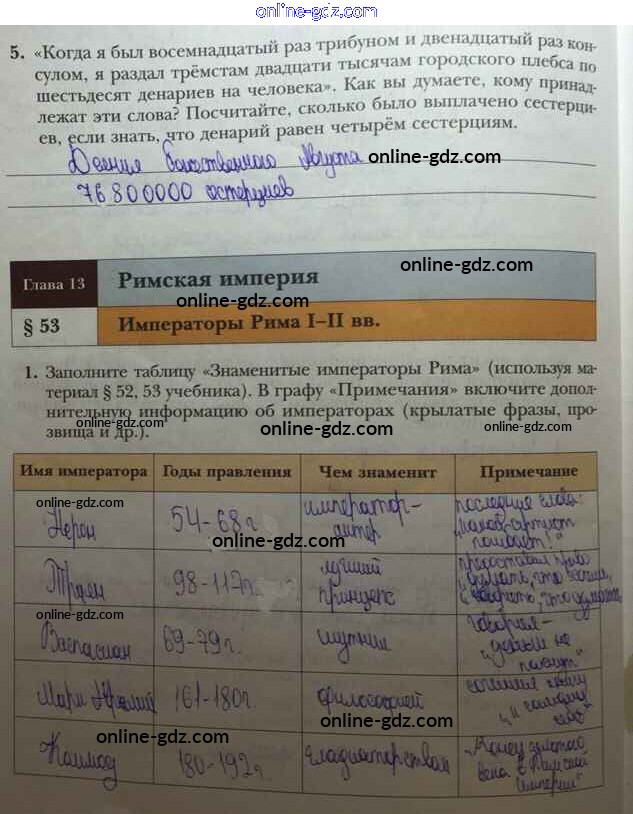 online-gdz.com
5. «Когда я был восемнадцатый раз трибуном и двенадцатый раз кон-
сулом, я раздал трёмстам двадцати тысячам городского плебса по
шестьдесят денариев на человека». Как вы думаете, кому принад-
лежат эти слова? Посчитайте, сколько было выплачено сестерци-
ев, если знать, что денарий равен четырём сестерциям.
Деяния божественного Августа
online-gdz.com
76 800000 сестерциев
online-gdz.com
Глава 13
Римская империя
online-gdz.com
§ 53
Императоры Рима I–II вв.
1. Заполните таблицу «Знаменитые императоры Рима» (используя ма-
териал § 52, 53 учебника). В графу «Примечания» включите допол-
нительную информацию об императорах (крылатые фразы, про-
звища и др.).
online-gdz.com
Имя императора Годы правления Чем знаменит Примечание
online-gdz.com
Нерон
54-68 г.
император-
актер
последние слова:
артист
online-gdz.com
Траян
98-117 г.
лучший
принцепс
предоставил право
думать, что
и говорить, что думаете
online-gdz.com
Веспасиан
69-79 г.
шутник
говорил-
"деньги не
пахнут"
online-gdz.com
Марк Аврелий
161-180 г.
философией
сочинил книгу
"к самому
себе"
online-gdz.com
Коммод
180-192 г.
гладиаторством
"Конец золотого
века в Римской
Империи"
online-gdz.com